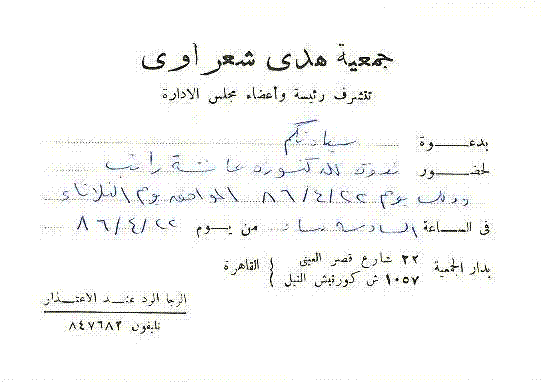 جمعية هدى شعراوى
تتشرف رئيسة وأعضاء مجلس الادارة
بدعوة سيادتكم
لحضور ندوة للدكتورة عائشة راتب
وذلك يوم ٨٦/٤/٢٢ الموافق يوم الثلاثاء
فى الساعة السادسة مساء من يوم ٨٦/٤/٢٢
بدار الجمعية ٢٢ شارع قصر العينى
١٠٥٧ ش كورنيش النيل } القاهرة
الرجا الرد عند الاعتذار
تليفون ٨٤٧٦٨٢